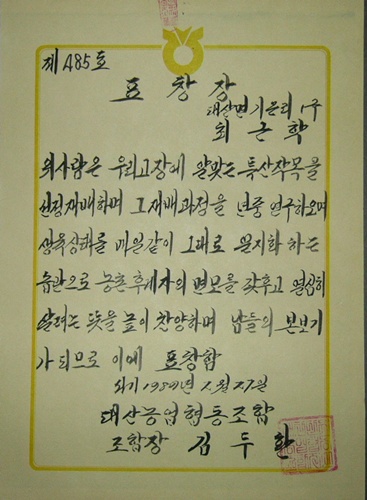 제485호
표창장
대산면 기은리 1구
최근학
위사람은 우리고장에 알맞는 특산작목을
선정재배하며 그 재배과정을 년중 연구하오며
생육상태를 매일같이 그대로 문지화 하는
습관으로 농촌후계자의 면모를 갖후고 열심히
살려는 뜻을 높이 찬양하며 남들의 본보기
가 되므로 이에 표창함
서기 198 년 월 27일
대산농업협동조합
조합장 김두환